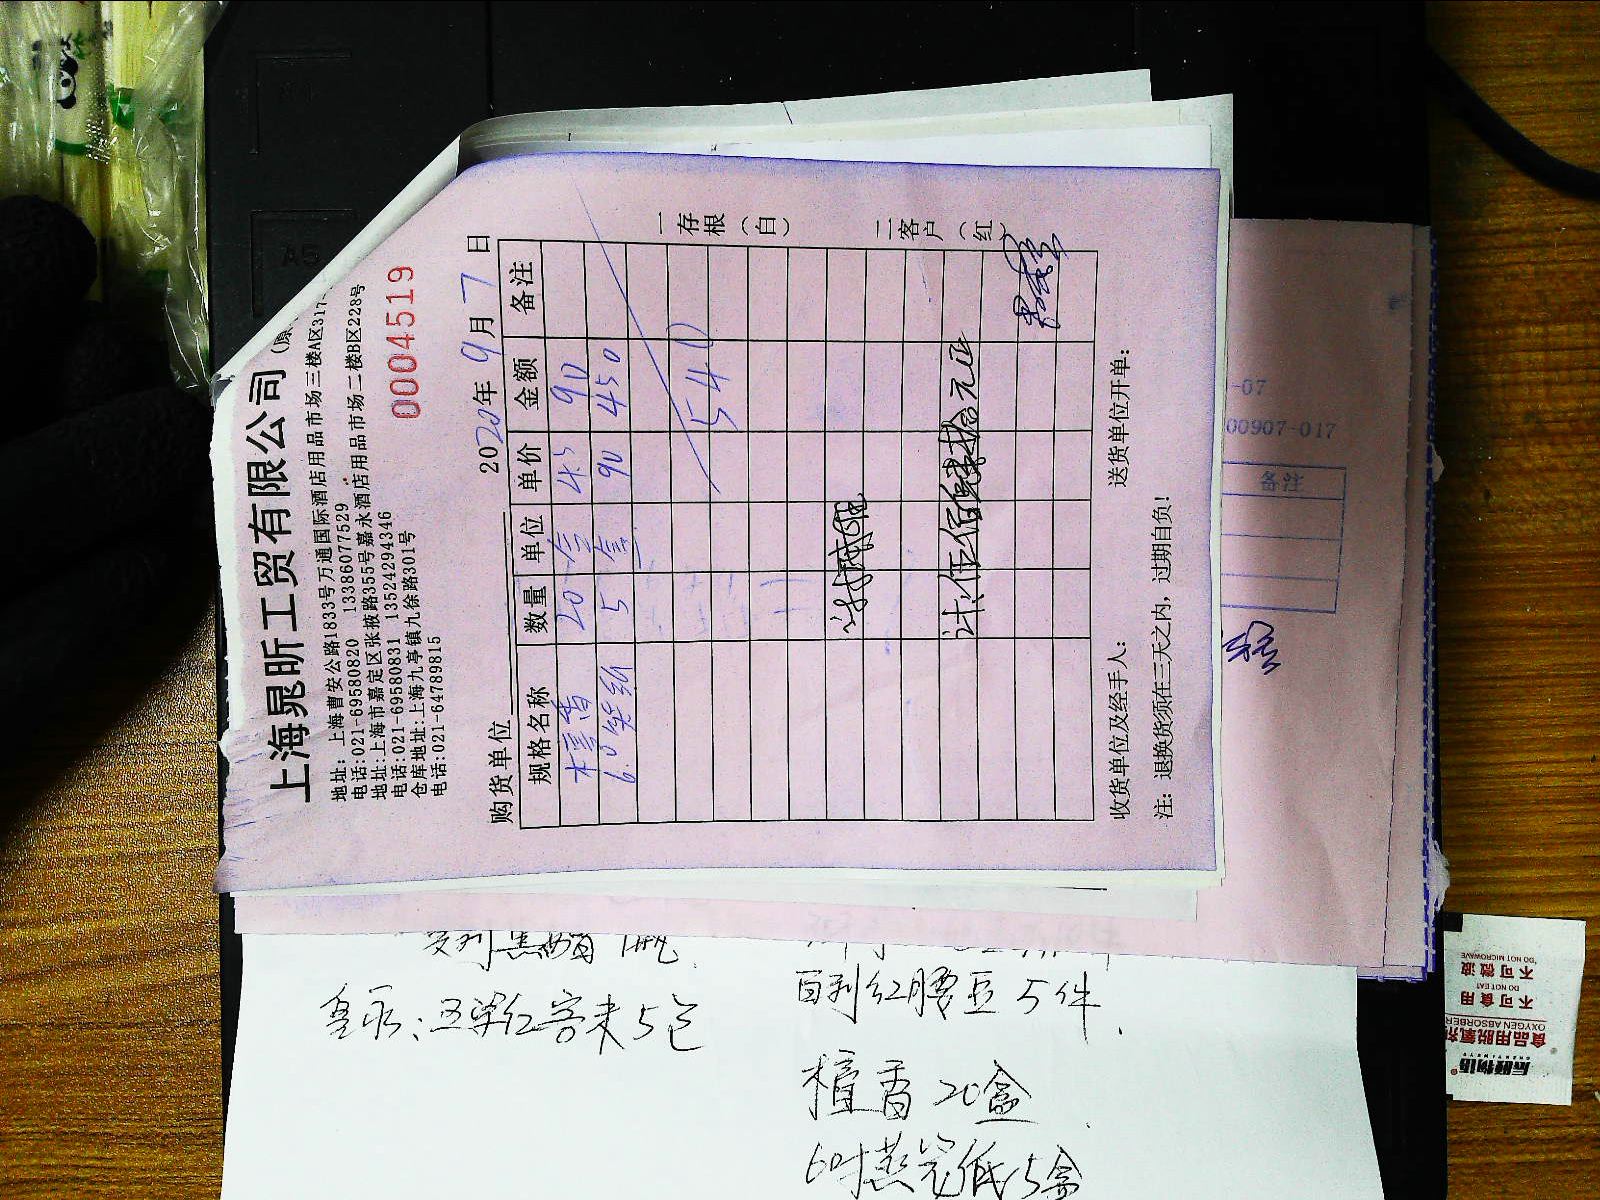 上海晁昕工贸有限公司
地址: 上海曹安公路1833号万通国际酒店用品市场三楼A区317-
电话:021-69580820 13386077529
地址:上海市嘉定区张掖路355号嘉永酒店用品市场二楼B区228号
电话:021-69580831 13524294346
仓库地址:上海九亭镇九徐路301号
电话:021-64789815
0004519
购货单位
2020年9月7日
规格名称 数量 单位 单价 金额 备注
檀香 20 盒 4.5 90
6.0 笼纸 5 盒 90 450
540
计:伍佰肆拾元正
一存根(白)
二客户(红)
收货单位及经手人:
送货单位开单:
注: 退换货须在三天之内, 过期自负!
-07
00907-017
备注
百利红腰豆5件
檀香20盒
6吋蒸笼纸5盒
食品用脱氧剂
OXYGEN ABSORBER
不可食用
DO NOT EAT
不可微波
DO NOT MICROWAVE
A5